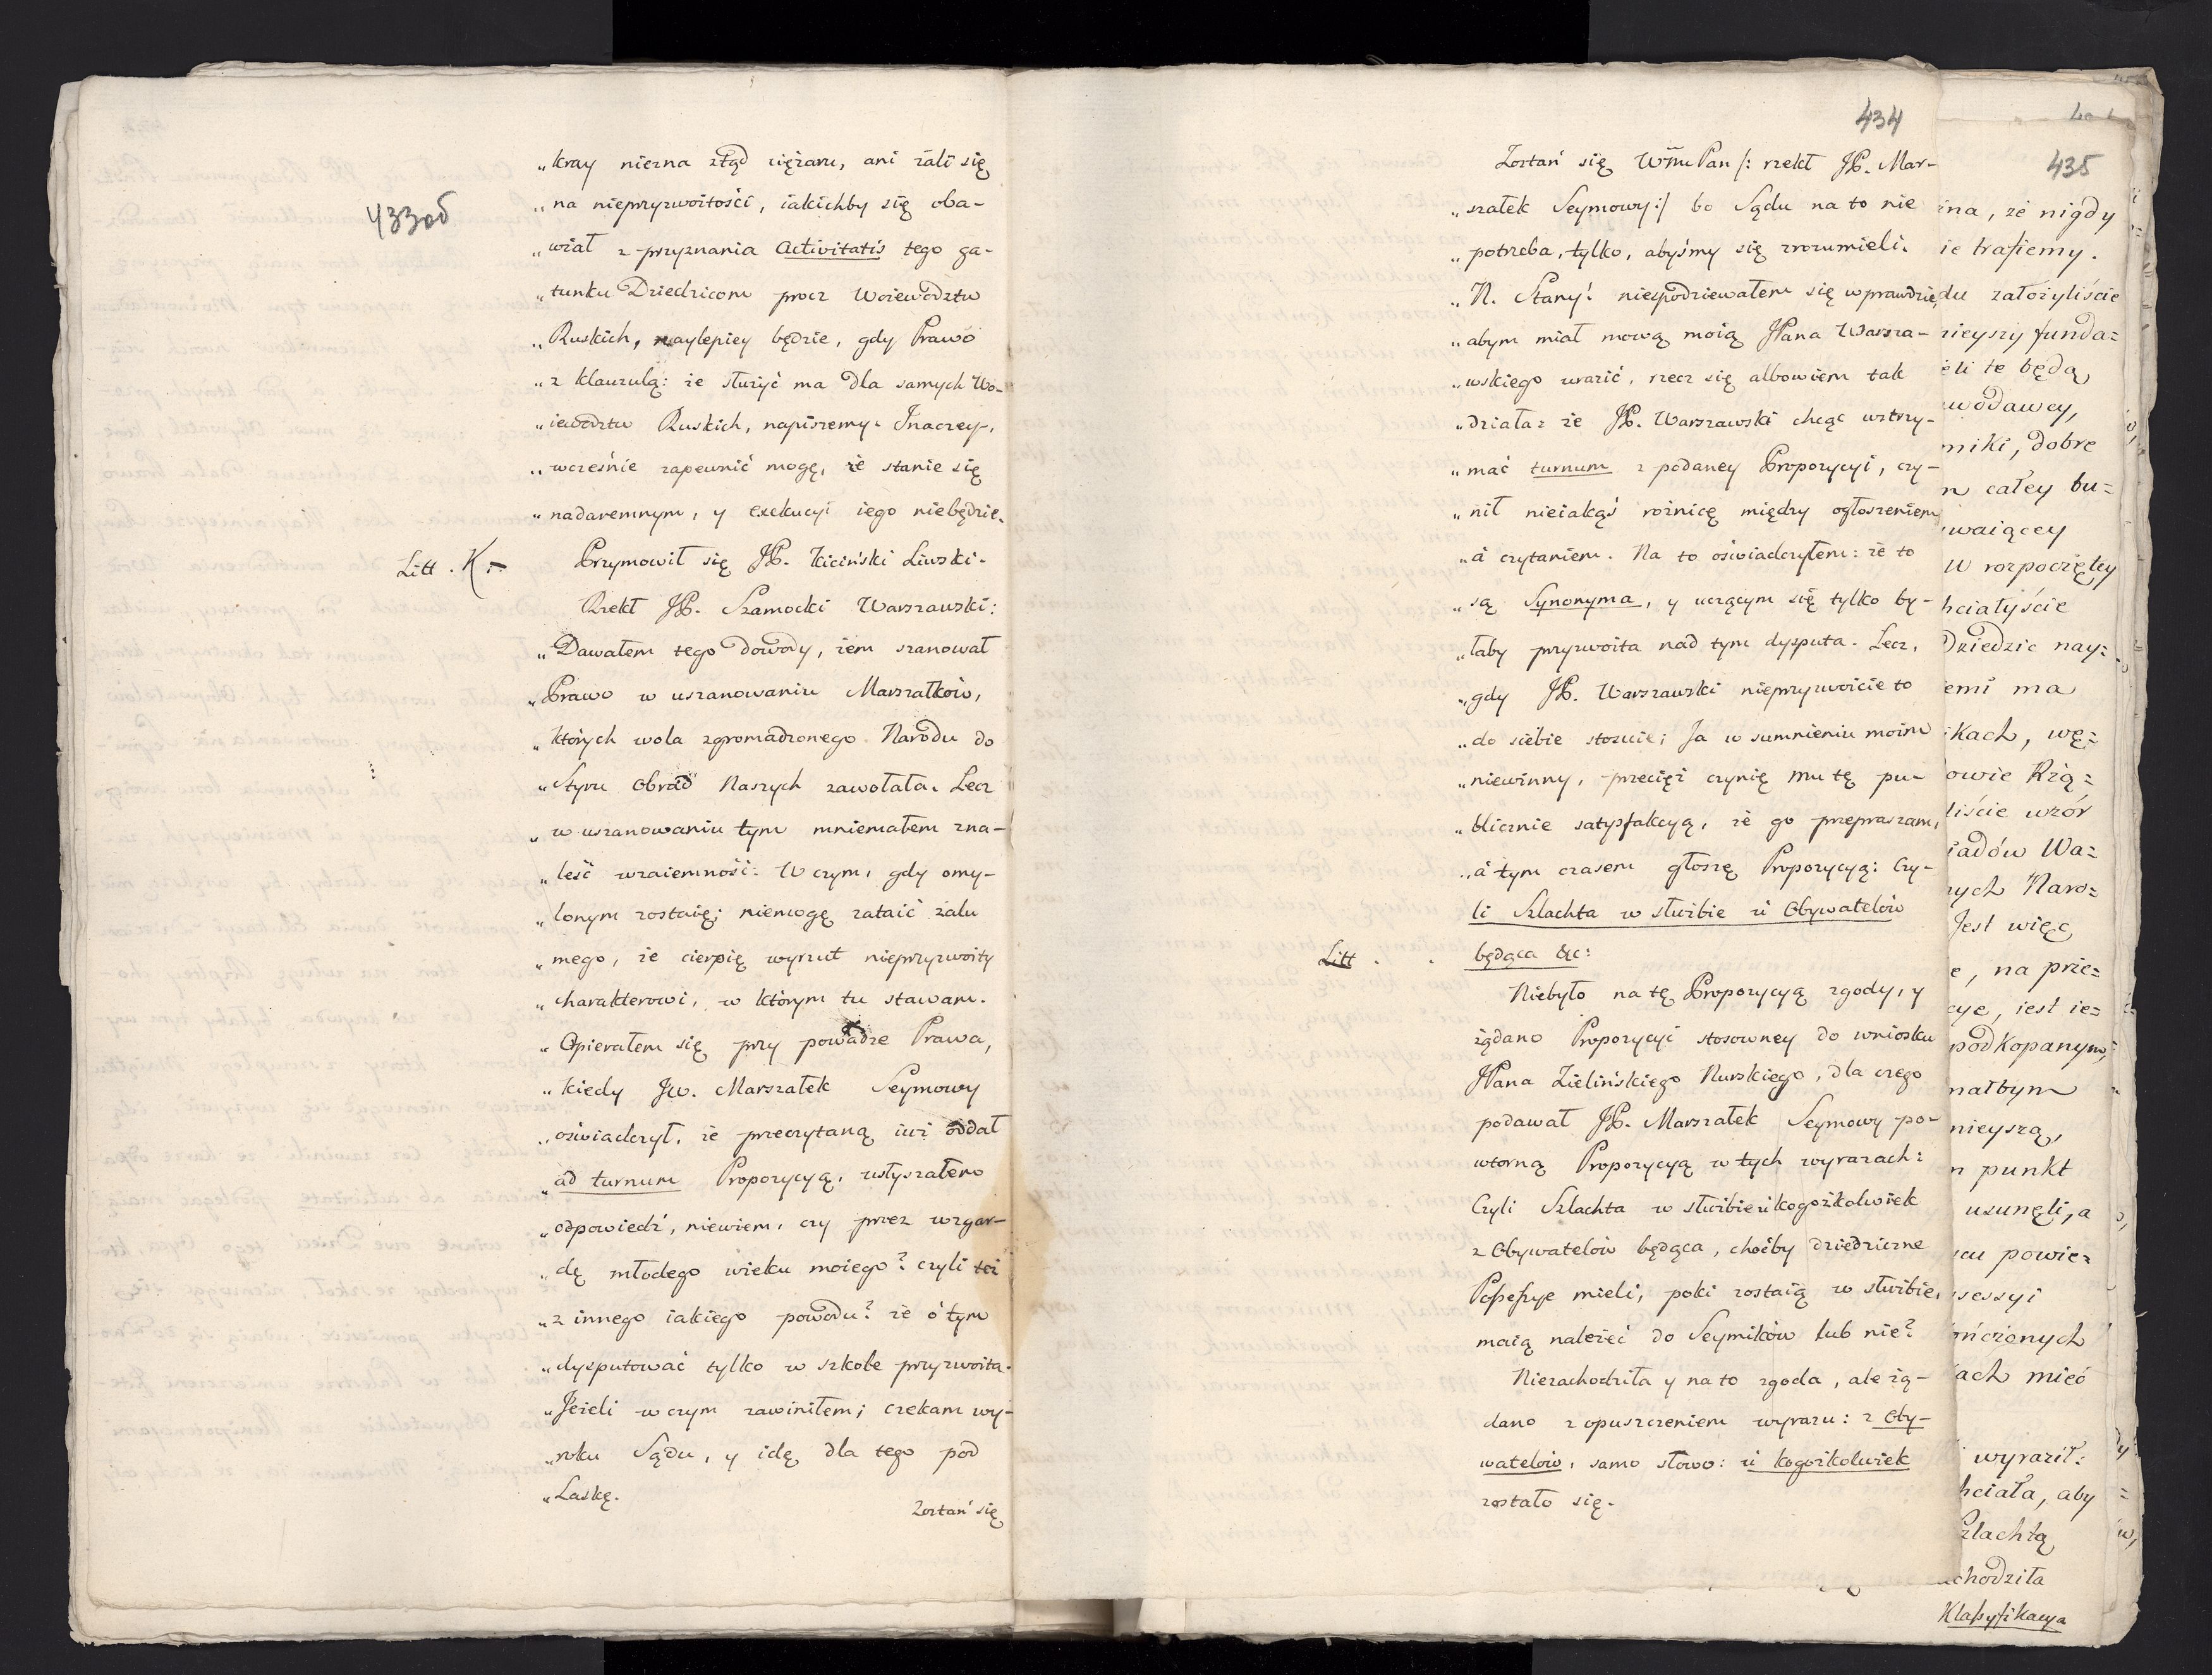 433об
„kray niezna ztąd ciężaru, ani żali się
„na nieprzyzwoitości, iakichby się oba-
„wiał z przyznania Activitatis tego ga-
„tunku Dziedzicom procz Woiewodztw
„Ruskich, naylepiey będzie, gdy Prawo
„z klauzulą: że służyć ma dla samych Wo-
„iewodztw Ruskich, napiszemy. Inaczey,
„wcześnie zapewnić mogę, że stanie się
„nadaremnym, y exekucyi iego niebędzie.
Litt. K.
Przymowił się JP. Kiciński Liwski.
Rzekł JP. Szamocki Warszawski:
„Dawałem tego dowody, żem szanował
„Prawo w uszanowaniu Marszałków,
„których wola zgromadzonego Narodu do
„Styru Obrad Naszych zawołała. Lecz
„w uszanowaniu tym mniemałem zna-
„leść wzaiemność: W czym, gdy omy-
„lonym zostaię; niemogę zataić żalu
„mego, że cierpię wyrzut nieprzyzwoity
„charakterowi, w którym tu stawam.
„Opierałem się przy powadze Prawa,
„kiedy Jw. Marszałek Seymowy
„oświadczył, że przeczytaną iuż oddał
„ad turnum Propozycyą, usłyszałem
„odpowiedź, niewiem, czy przez wzgar-
„dę młodego wieku moiego? czyli też
„z innego iakiego powodu? że o tym
„dysputować tylko w szkole przyzwoita.
„Jeżeli w czym zawiniłem; czekam wy-
„roku Sądu, y idę dla tego pod
„Laskę.
Zostań się
434
Zostań się WMPan /: rzekł JP. Mar-
„szałek Seymowy:/ bo Sądu na to nie
„potrzeba, tylko, abyśmy się zrozumieli.
„N. Stany! niespodziewałem się wprawdzie,
„abym miał mową moią JPana Warsza-
„wskiego urazić, rzecz się albowiem tak
„działa: że JP. Warszawski chcąc wstrzy-
„mać turnum z podaney Propozycyi, czy-
„nił nieiakąś rożnicę między ogłoszeniem
„a czytaniem. Na to oświadczyłem: że to
„są Synonyma, y uczącym się tylko by-
„łaby przyzwoita nad tym dysputa. Lecz,
„gdy JP. Warszawski nieprzyzwoicie to
„do siebie stosuie; Ja w sumnieniu moim
„niewinny, przecięż czynię mu tę pu-
„blicznie satysfakcyą, że go przepraszam,
„a tym czasem głoszę Propozycyą: Czy-
li Szlachta w służbie u Obywatelów
Litt . .
będąca &c:
Niebyło na tę Propozycyą zgody, y
żądano Propozycyi stosowney do wniosku
JPana Zielińskiego Nurskiego, dla czego
podawał JP. Marszałek Seymowy po-
wtorną Propozycyą w tych wyrazach:
Czyli Szlachta w służbie u kogożkolwiek
z Obywatelów będąca, choćby dziedziczne
Possessye mieli, poki zostaią w służbie,
maią należeć do Seymików lub nie?
Niezachodziła y na to zgoda, ale żą-
dano z opuszczeniem wyrazu: z Oby-
watelów, samo słowo: u kogożkolwiek
zostało się.
435
ina, że nigdy
ie trafiemy.
du założyliście
nieyszy funda=
eli te będą
wodawcy,
niki, dobre
całey bu=
waiącey
W rozpoczętey
hciałyście
Dziedzic nay=
emi ma
ikach, wę=
owie Rzą=
liście wzór
iadów Wa=
nych Naro=
Jest więc
e, na prze=
cye, iest ie=
podkopanym,
nałbym
nieyszą,
punkt
usunęli, a
cu powie=
ssessyi
ończonych
ach mieć
wyraził:
hciała, aby
Szlachtą
achodziła
Klassyfikacya